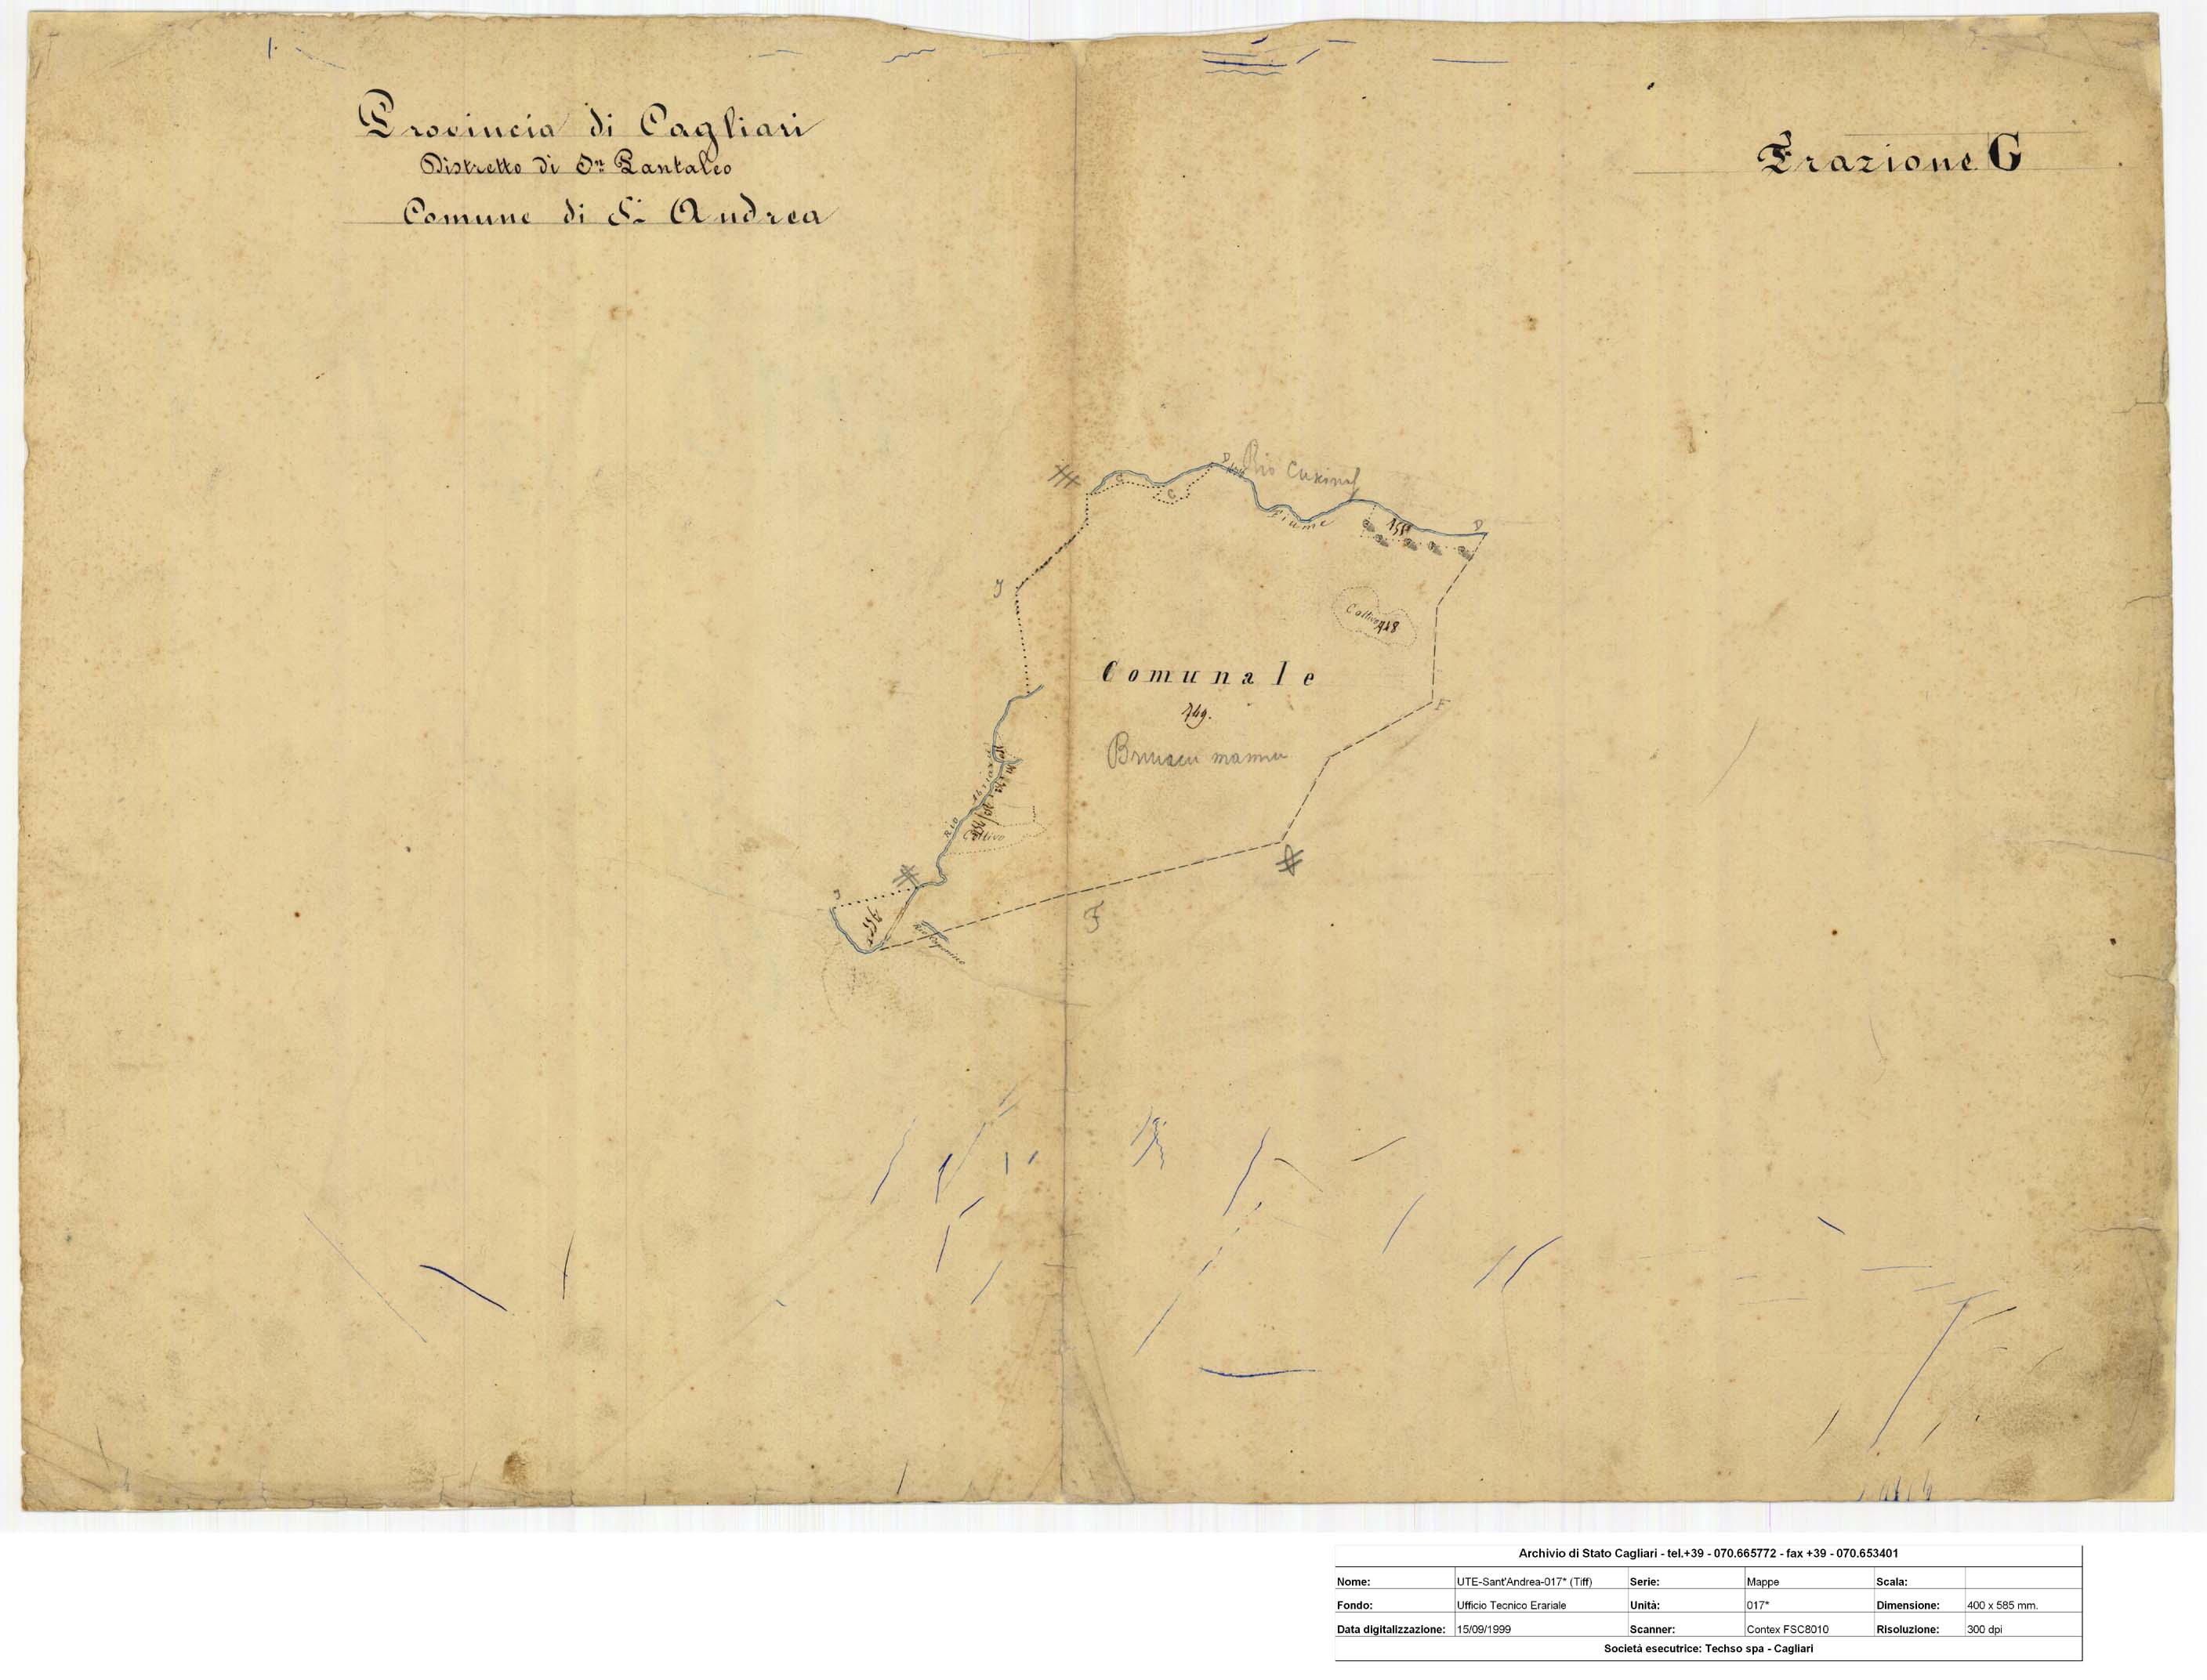 Provincia di Cagliari
Distretto di Sn Pantaleo
Comune di St. Andrea
Frazione G
D
Rio
G
C
Fiume
D
J
Coltivo
Comunale
749.
F
Rio
Coltivo
J
F
Archivio di Stato Cagliari - tel.+39 - 070.665772 - fax +39 - 070.653401
Nome: UTE-Sant'Andrea-017* (Tiff) Serie: Mappe Scala:
Fondo: Ufficio Tecnico Erariale Unità: 017* Dimensione: 400 x 585 mm.
Data digitalizzazione: 15/09/1999 Scanner: Contex FSC8010 Risoluzione: 300 dpi
Società esecutrice: Techso spa - Cagliari